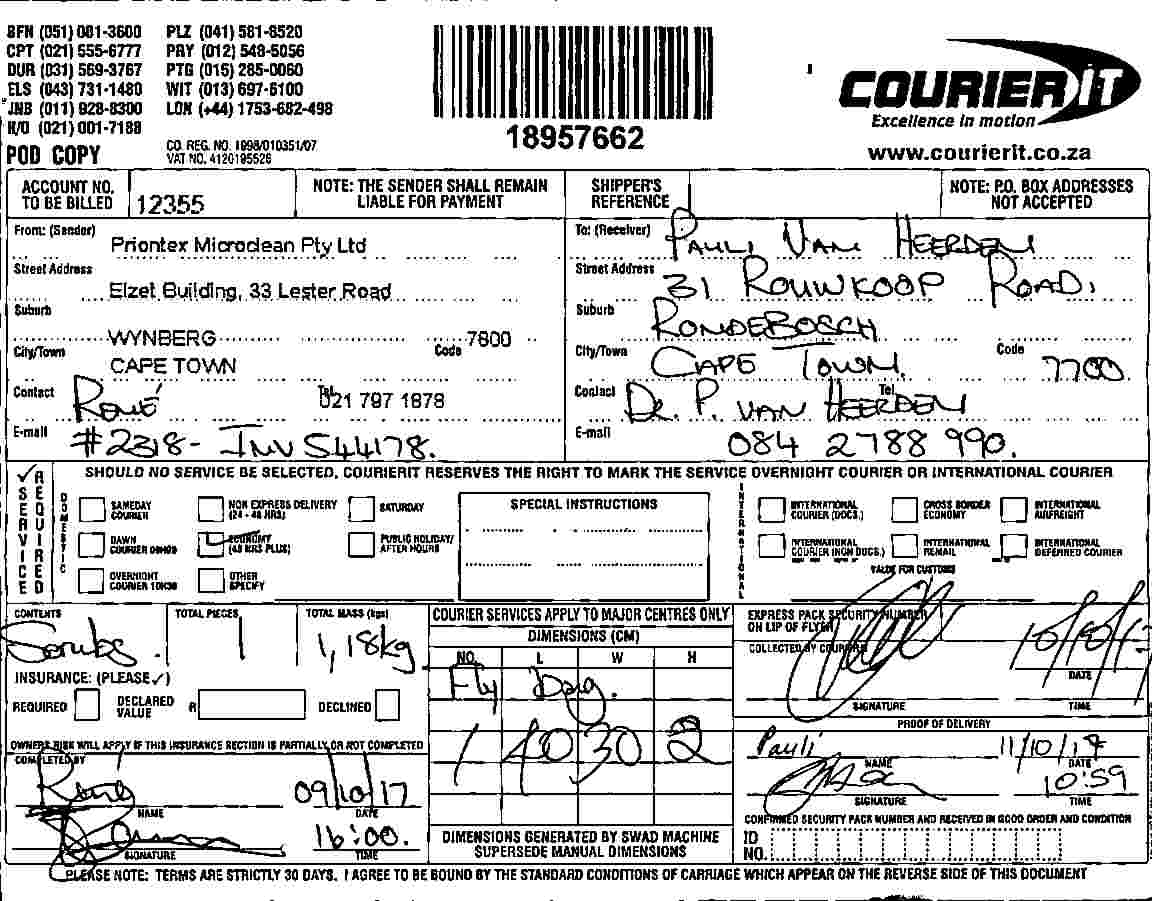 BFN (051) 001-3600 PLZ (041) 581-8520
CPT (021) 555-6777 PRY (012) 548-5056
DUR (031) 569-3767 PTG (015) 285-0060
ELS (043) 731-1480 WIT (013) 697-6100
JNB (011) 928-8300 LON (+44) 1753-682-498
H/O (021) 001-7188
POD COPY
CO. REG. NO. 1998/010351/07
VAT NO. 4120195526
18957662
COURIER IT
Excellence in motion
www.courierit.co.za
ACCOUNT NO. TO BE BILLED 12355
NOTE: THE SENDER SHALL REMAIN LIABLE FOR PAYMENT
SHIPPER'S REFERENCE
NOTE: P.O. BOX ADDRESSES NOT ACCEPTED
From: (Sender) Priontex Microclean Pty Ltd
Street Address Elzet Building, 33 Lester Road
Suburb WYNBERG
City/Town CAPE TOWN Code 7800
Contact René Tel 021 797 1878
E-mail #2318- INV 544178.
To: (Receiver) PAULI VAN HEERDEN
Street Address 31 ROUWKOOP ROAD,
Suburb RONDEBOSCH
City/Town CAPE TOWN. Code 7700
Contact DR. P. VAN HEERDEN Tel.
E-mail 084 2788 990.
SHOULD NO SERVICE BE SELECTED, COURIERIT RESERVES THE RIGHT TO MARK THE SERVICE OVERNIGHT COURIER OR INTERNATIONAL COURIER
✓ SERVICE REQUIRED
DOMESTIC
SAMEDAY COURIER
NON EXPRESS DELIVERY (24 - 48 HRS)
SATURDAY
DAWN COURIER 09H00
ECONOMY (48 HRS PLUS)
PUBLIC HOLIDAY/ AFTER HOURS
OVERNIGHT COURIER 10H30
OTHER SPECIFY
SPECIAL INSTRUCTIONS
INTERNATIONAL
INTERNATIONAL COURIER (DOCS.)
CROSS BORDER ECONOMY
INTERNATIONAL AIRFREIGHT
INTERNATIONAL COURIER (NON DOCS.)
INTERNATIONAL REMAIL
INTERNATIONAL DEFERRED COURIER
VALUE FOR CUSTOMS
CONTENTS Scrubs.
TOTAL PIECES 1
TOTAL MASS (kgs) 1,18kg
INSURANCE: (PLEASE ✓)
REQUIRED DECLARED VALUE R DECLINED
OWNERS RISK WILL APPLY IF THIS INSURANCE SECTION IS PARTIALLY OR NOT COMPLETED
COMPLETED BY
René 09/10/17
NAME DATE
16:00.
SIGNATURE TIME
COURIER SERVICES APPLY TO MAJOR CENTRES ONLY
DIMENSIONS (CM)
NO. L W H
Fly
1 40 30 2
DIMENSIONS GENERATED BY SWAD MACHINE SUPERSEDE MANUAL DIMENSIONS
EXPRESS PACK SECURITY NUMBER ON LIP OF FLYER
COLLECTED BY COURIERIT
DATE
SIGNATURE TIME
PROOF OF DELIVERY
Pauli 11/10/17
NAME DATE
10:59
SIGNATURE TIME
CONFIRMED SECURITY PACK NUMBER AND RECEIVED IN GOOD ORDER AND CONDITION
ID NO.
PLEASE NOTE: TERMS ARE STRICTLY 30 DAYS. I AGREE TO BE BOUND BY THE STANDARD CONDITIONS OF CARRIAGE WHICH APPEAR ON THE REVERSE SIDE OF THIS DOCUMENT